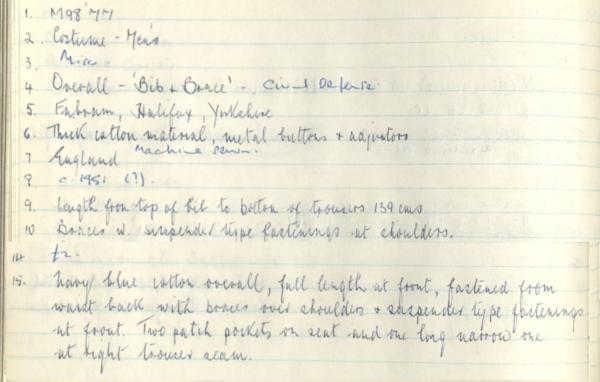 1. M98'77
2. Costume - Men's
3. Misc
4 Overall - 'Bib & Brace' - Civil Defense
5. Fabram, Halifax, Yorkshire
6 Thick cotton material, metal buttons & adjustors
Machine sewn.
7 England
8 c. 1951 (?).
9. Length from top of bib to bottom of trousers 139 cms
10 Braces w. suspender type fastenings at shoulders.
14 £2.
15. Navy blue cotton overall, full length at front, fastened from
waist back with braces over shoulders & suspender type fastenings
at front. Two patch pockets on seat and one long narrow one
at right trouser seam.